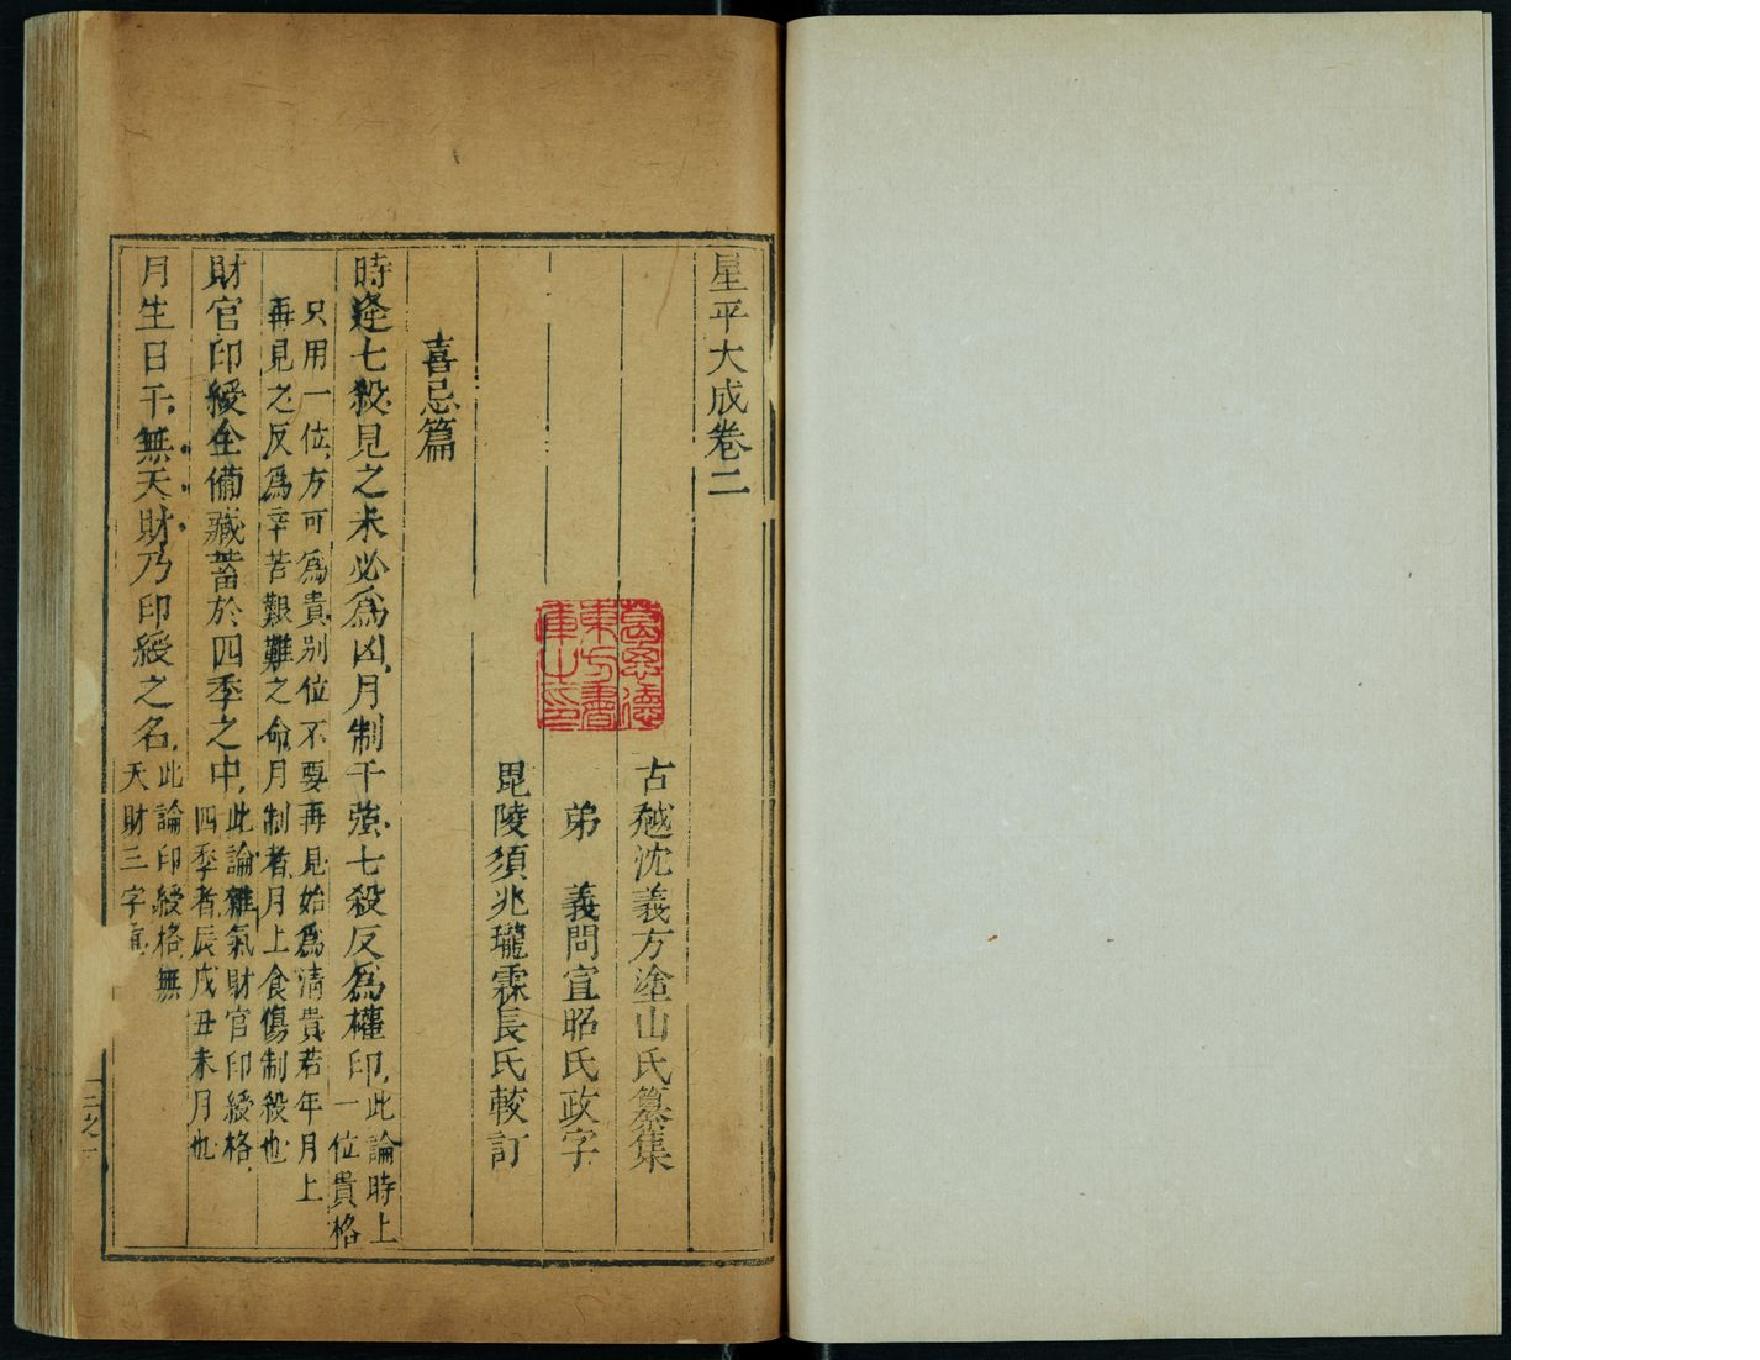 星平大成卷二
古越沈義方塗山氏纂集
弟　義問宜昭氏政字
毘陵須兆瓏霖長氏較訂
喜忌篇
時逄七殺見之未必爲凶月制干強七殺反爲權印此論時上一位貴格
只用一位方可爲貴别位不要再見始爲清貴若年月上
再見之反爲辛苦艱難之命月制者月上食傷制殺也
財官印綬全備藏蓄於四季之中此論雜氣財官印綬格四季者辰戌丑未月也
月生日干無天財乃印綬之名此論印綬格無天財三字
葛思德東方書庫之印